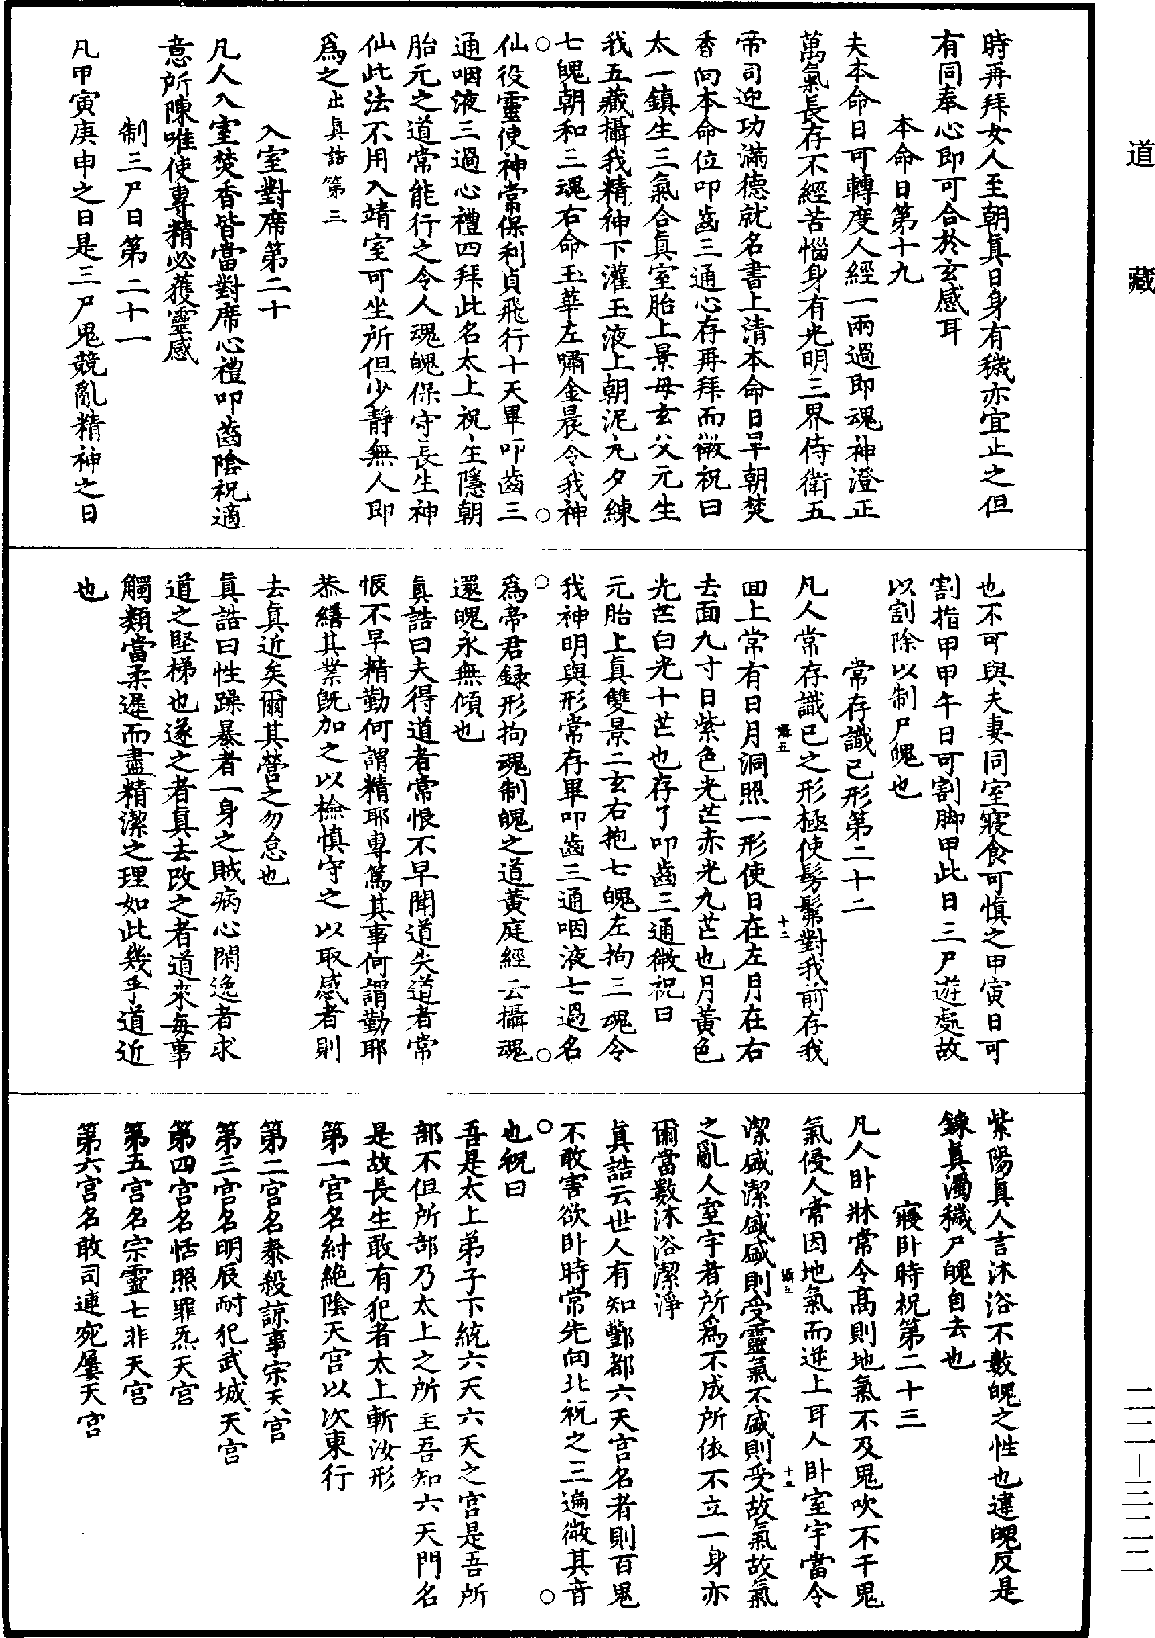 道藏
時再拜女人至朝真日身有穢亦宜止之但
有同奉心即可合於玄感耳
本命日第十九
夫本命日可轉度人經一兩過即魂神澄正
萬氣長存不經苦惱身有光明三界侍衛五
帝司迎功滿德就名書上清本命日早朝焚
香向本命位叩齒三通心存再拜而微祝曰
太一鎮生三氣合真室胎上景母玄父元生
我五藏攝我精神下灌玉液上朝泥丸夕練
七魄朝和三魂右命玉華左嘯金晨令我神
仙役靈使神常保利貞飛行十天畢叩齒三
通咽液三過心禮四拜此名太上祝生隱朝
胎元之道常能行之令人魂魄保守長生神
仙此法不用入靖室可坐所但少靜無人即
爲之出真誥第三
入室對席第二十
凡人入室焚香皆當對席心禮叩齒陰祝適
意所陳唯使專精必獲靈感
制三尸日第二十一
凡甲寅庚申之日是三尸鬼競亂精神之日
也不可與夫妻同室寢食可慎之甲寅日可
割指甲甲午日可割脚甲此日三尸遊處故
以割除以制尸魄也
常存識己形第二十二
凡人常存識己之形極使髣髴對我前存我
面上常有日月洞照一形使日在左月在右
去面九寸日紫色光芒赤光九芒也月黃色
光芒白光十芒也存了叩齒三通微祝曰
元胎上真雙景二玄右抱七魄左拘三魂令
我神明與形常存畢叩齒三通咽液七過名
爲帝君録形拘魂制魄之道黃庭經云攝魂
還魄永無傾也
真誥曰夫得道者常恨不早聞道失道者常
恨不早精勤何謂精耶專篤其事何謂勤耶
恭繕其業既加之以檢慎守之以取感者則
去真近矣爾其營之勿怠也
真誥曰性躁暴者一身之賊病心閑逸者求
道之堅梯也遂之者真去改之者道來每事
觸類當柔遲而盡精潔之理如此幾乎道近
也
紫陽真人言沐浴不數魄之性也違魄反是
鍊真濁穢尸魄自去也
寢卧時祝第二十三
凡人卧牀常令高則地氣不及鬼吹不干鬼
氣侵人常因地氣而逆上耳人卧室宇當令
潔盛潔盛盛則受靈氣不盛則受故氣故氣
之亂人室宇者所爲不成所依不立一身亦
爾當數沐浴潔淨
真誥云世人有知酆都六天宮名者則百鬼
不敢害欲卧時常先向北祝之三遍微其音
也祝曰
吾是太上弟子下統六天六天之宮是吾所
部不但所部乃太上之所主吾知六天門名
是故長生敢有犯者太上斬汝形
第一宮名紂絶陰天宮以次東行
第二宮名泰殺諒事宗天宮
第三宮名明辰耐犯武城天宮
第四宮名恬照罪炁天宮
第五宮名宗靈七非天宮
第六宮名敢司連宛屢天宮
二一二—三二二